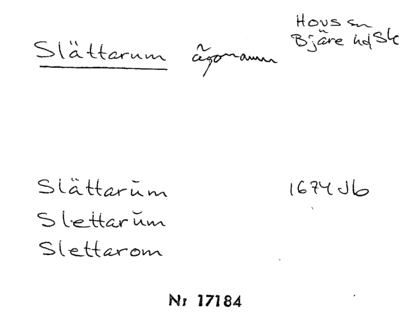 Slättarum ägonamn Hovs sn
Bjäre hd Sk
Slättarum̆ 1674 Jb
Slettarum̆
Slettarom
Nr 17184